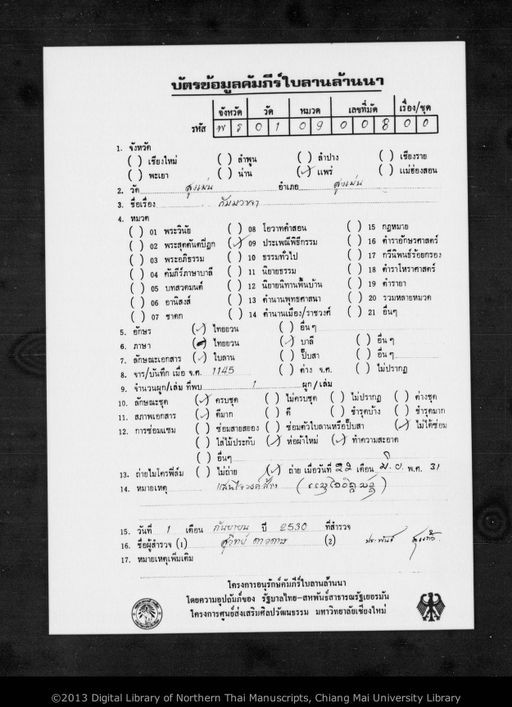 บัตรข้อมูลคัมภีร์ใบลานล้านนา
จังหวัด วัด หมวด เลขที่มัด เรื่อง/ชุด
รหัส พร 0 1 0 9 0 0 8 0 0
1. จังหวัด
( ) เชียงใหม่ ( ) ลำพูน ( ) ลำปาง ( ) เชียงราย
( ) พะเยา ( ) น่าน (✓) แพร่ ( ) แม่ฮ่องสอน
2. วัด สูงเม่น อำเภอ สูงเม่น
3. ชื่อเรื่อง กัมมวาจา
4. หมวด
( ) 01 พระวินัย ( ) 08 โอวาทคำสอน ( ) 15 กฎหมาย
( ) 02 พระสุตตันตปิฎก (✓) 09 ประเพณีพิธีกรรม ( ) 16 ตำราอักษรศาสตร์
( ) 03 พระอภิธรรม ( ) 10 ธรรมทั่วไป ( ) 17 กวีนิพนธ์ร้อยกรอง
( ) 04 คัมภีร์ภาษาบาลี ( ) 11 นิยายธรรม ( ) 18 ตำราโหราศาสตร์
( ) 05 บทสวดมนต์ ( ) 12 นิยายนิทานพื้นบ้าน ( ) 19 ตำรายา
( ) 06 อานิสงส์ ( ) 13 ตำนานพุทธศาสนา ( ) 20 รวมหลายหมวด
( ) 07 ชาดก ( ) 14 ตำนานเมือง/ราชวงศ์ ( ) 21 อื่นๆ
5. อักษร (✓) ไทยยวน ( ) อื่นๆ
6. ภาษา ไทยยวน (✓) บาลี ( ) อื่นๆ
7. ลักษณะเอกสาร (✓) ใบลาน ( ) ปั๊บสา ( ) อื่นๆ
8. จาร/บันทึก เมื่อ จ.ศ. 1145 ( ) ค่าง จ.ศ. ( ) ไม่ปรากฏ
9. จำนวนผูก/เล่ม ที่พบ 1 ผูก/เล่ม
10. ลักษณะชุด (✓) ครบชุด ( ) ไม่ครบชุด ( ) ไม่ปรากฏ ( ) ค่างชุด
11. สภาพเอกสาร (✓) ดีมาก ( ) ดี ( ) ชำรุดบ้าง ( ) ชำรุดมาก
12. การซ่อมแซม ( ) ซ่อมสายสยอง ( ) ซ่อมตัวใบลานหรือปั๊บสา (✓) ไม่ได้ซ่อม
( ) ใส่ไม้ประกับ (✓) ห่อผ้าใหม่ (✓) ทำความสะอาด
( ) อื่นๆ
13. ถ่ายไมโครฟิล์ม ( ) ไม่ถ่าย (✓) ถ่าย เมื่อวันที่ 22 เดือน มิ.ย. พ.ศ. 31
14. หมายเหตุ
15. วันที่ 1 เดือน กันยายน ปี 2530 ที่สำรวจ
16. ชื่อผู้สำรวจ (1) (2)
17. หมายเหตุเพิ่มเติม
โครงการอนุรักษ์คัมภีร์ใบลานล้านนา
โดยความอุปถัมภ์ของ รัฐบาลไทย-สหพันธ์สาธารณรัฐเยอรมัน
โครงการศูนย์ส่งเสริมศิลปวัฒนธรรม มหาวิทยาลัยเชียงใหม่
©2013 Digital Library of Northern Thai Manuscripts, Chiang Mai University Library